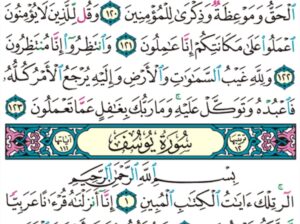 الْحَقُّ وَمَوْعِظَةٌ وَذِكْرَىٰ لِلْمُؤْمِنِينَ ١٢٠ وَقُل لِّلَّذِينَ لَا يُؤْمِنُونَ
اعْمَلُوا عَلَىٰ مَكَانَتِكُمْ إِنَّا عَامِلُونَ ١٢١ وَانتَظِرُوا إِنَّا مُنتَظِرُونَ
١٢٢ وَلِلَّهِ غَيْبُ السَّمَاوَاتِ وَالْأَرْضِ وَإِلَيْهِ يُرْجَعُ الْأَمْرُ كُلُّهُ
فَاعْبُدْهُ وَتَوَكَّلْ عَلَيْهِ وَمَا رَبُّكَ بِغَافِلٍ عَمَّا تَعْمَلُونَ ١٢٣
سُورَةُ يُوسُفَ
بِسْمِ اللَّهِ الرَّحْمَٰنِ الرَّحِيمِ
الر تِلْكَ آيَاتُ الْكِتَابِ الْمُبِينِ ١ إِنَّا أَنزَلْنَاهُ قُرْآنًا عَرَبِيًّا